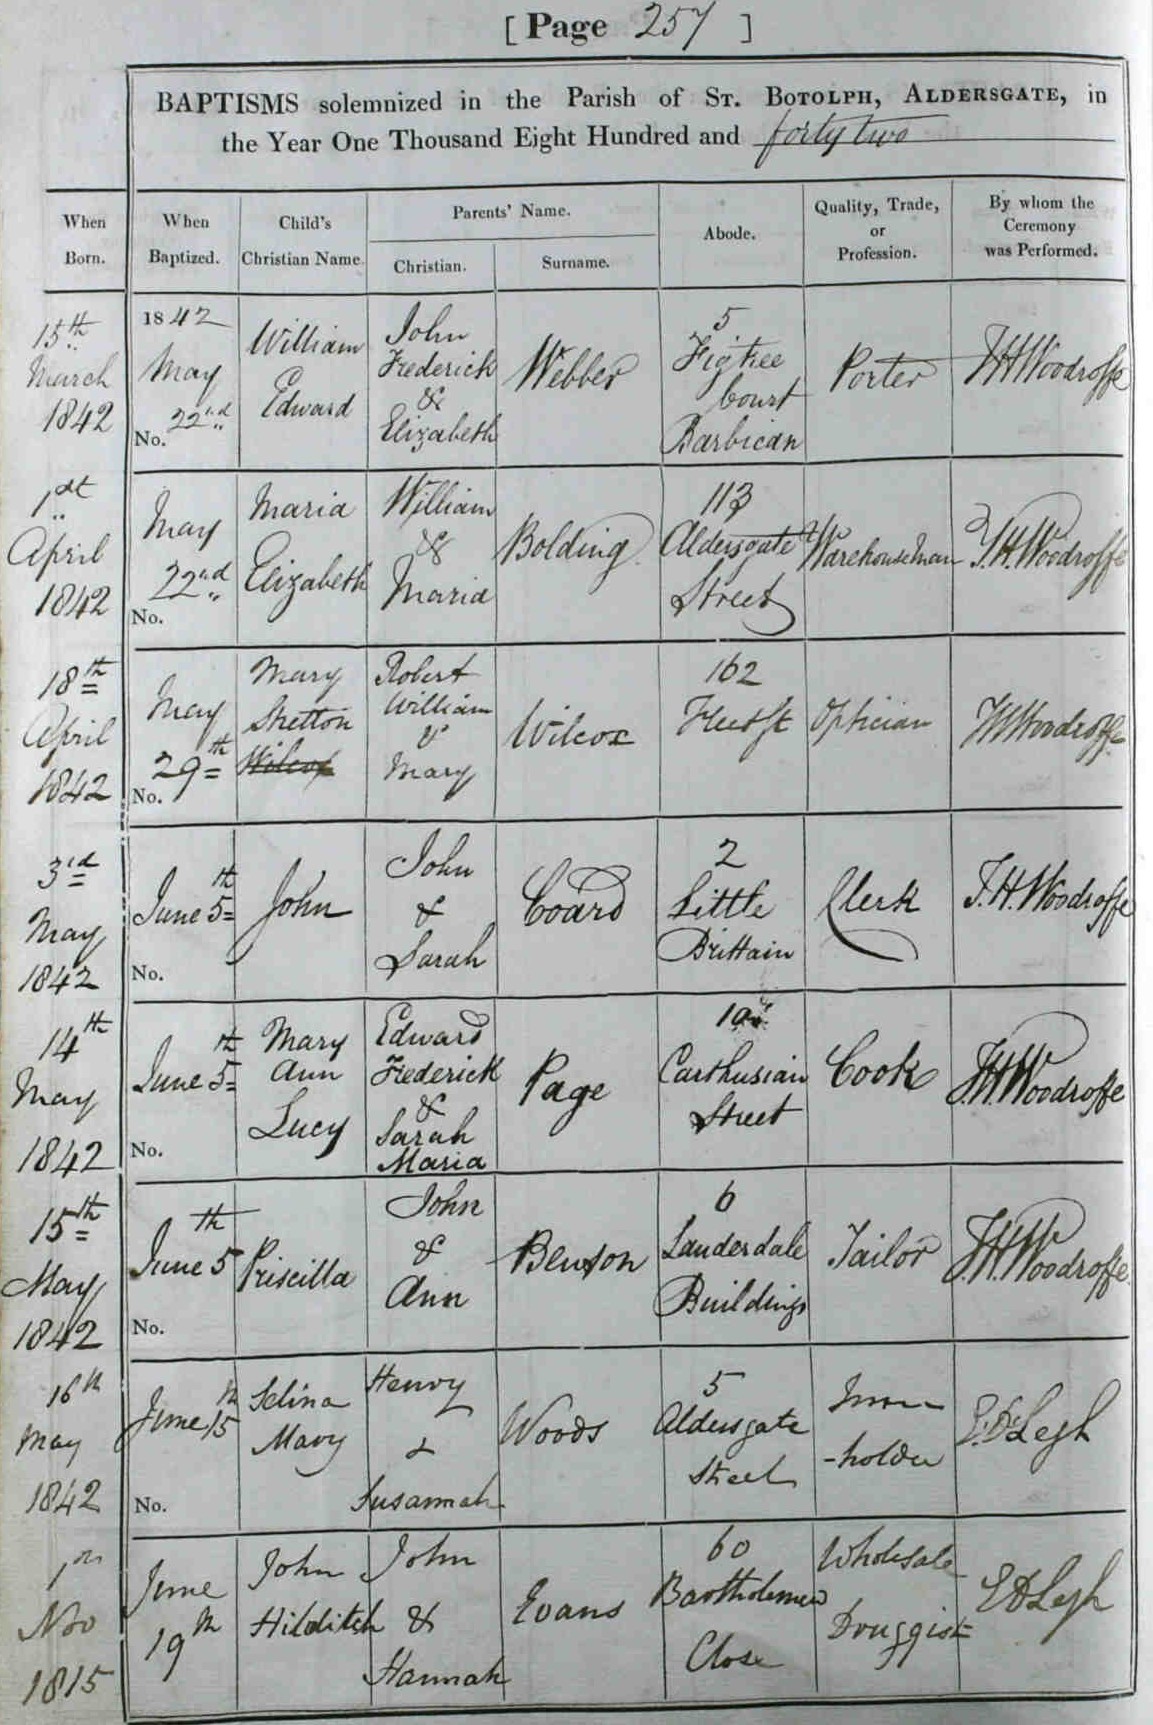 [ Page 257 ]
BAPTISMS solemnized in the Parish of ST. BOTOLPH, ALDERSGATE, in
the Year One Thousand Eight Hundred and forty two
When Born.
When Baptized.
Child's Christian Name
Parents' Name.
Christian.
Surname.
Abode.
Quality, Trade, or Profession.
By whom the Ceremony was Performed.
15th March 1842
1842 May 22nd No.
William Edward
John Frederick & Elizabeth
Webber
5 Figtree Court Barbican
Porter
J H Woodroffe
1st April 1842
May 22nd No.
Maria Elizabeth
William & Maria
Bolding
113 Aldersgate Street
Warehouseman
J. H. Woodroffe
18th April 1842
May 29th No.
Mary Stretton Wilcox
Robert William & Mary
Wilcox
162 Fleet St
Optician
J H Woodroffe
3rd May 1842
June 5th No.
John
John & Sarah
Coard
2 Little Brittain
Clerk
J. H. Woodroffe
14th May 1842
June 5th No.
Mary Ann Lucy
Edward Frederick & Sarah Maria
Page
Carthusian Street
Cook
J. H. Woodroffe
15th May 1842
June 5th No.
Priscilla
John & Ann
Benson
6 Lauderdale Buildings
Tailor
J. H. Woodroffe
16th May 1842
June 15th No.
Selina Mary
Henry & Susannah
Woods
5 Aldersgate Street
Inn-holder
E. D. Legh
1st Nov 1815
June 19th
John Hilditch
John & Hannah
Evans
60 Bartholomew Close
Wholesale Druggist
E D Legh